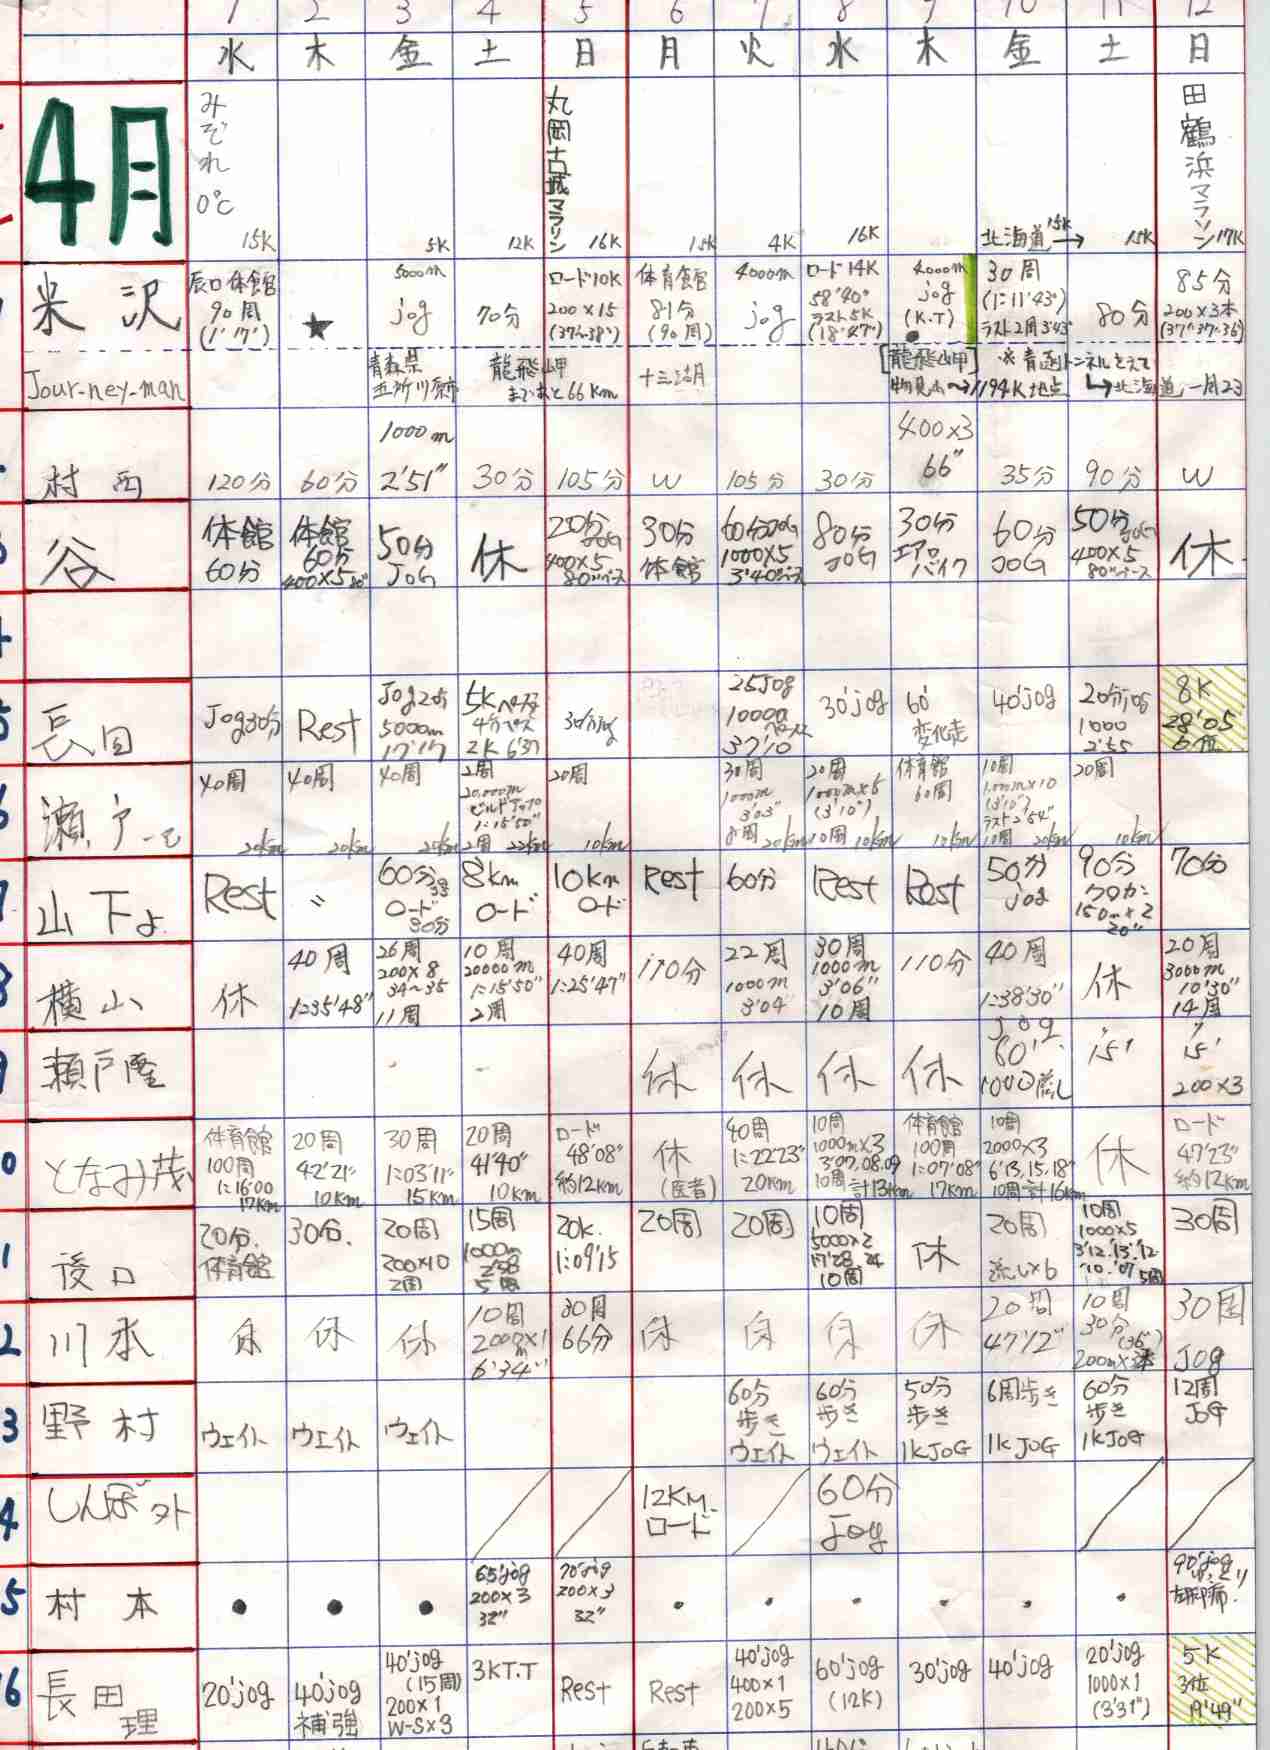 1 2 3 4 5 6 7 8 9 10 11 12
水 木 金 土 日 月 火 水 木 金 土 日
4月
みぞれ 0℃ 15K
5K
12K
丸岡古城マラソン 16K
15K
4K
16K
北海道 15K →
15K
田鶴浜マラソン 17K
米沢
辰口体館 90周 (1°17')
★
5000m jog
70分
ロード10K 200×15 (37"~38")
体育館 81分 (90周)
4000m jog
ロード14K 58'40" ラスト5K (18'47")
4000m jog (K.T) ●
30周 (1:11'43") ラスト2周3'43"
80分
85分 200×3本 (37"37"36")
Jour-ney-man
青森県 五所川原市
龍飛岬 まであと66km
十三湖
[龍飛岬]
※青函トンネルこえて
1194K地点 → 北海道
村西
120分
60分
1000m 2'51"
30分
105分
W
105分
30分
400×3 66"
35分
90分
W
谷
体館 60分
体館 60分 400×5
50分 JOG
休
20分 JOG 400×5 80"ペース
30分 体館
60分JOG 1000×5 3'40"ペース
80分 JOG
30分 エアロバイク
60分 JOG
50分JOG 400×5 80"ペース
休
長田
Jog30分
Rest
Jog20分 5000m 17'17
5K 4分ペース 2K 6'37
30分jog
25Jog 10000 37'10
30'jog
60' 変化走
40'jog
20分jog 1000 2'55
8K 28'05 6位
瀬戸一
40周 20km
40周 20km
40周 20km
2周 20,000m ビルドアップ 1:15'50" 2周 22km
20周 10km
30周 1000m 3'03" 8周 20km
20周 1000m×5 (3'10") 10周 10km
体育館 60周 10km
10周 1000m×10 (3'10") ラスト2'54" 10周 20km
20周 10km
山下よ
Rest
〃
60分 ロード 30分
8km ロード
10km ロード
Rest
60分
Rest
Rest
50分 jog
90分 クロカン 150m×2 20"
70分
横山
休
40周 1:35'48"
26周 200×8 34~35 11周
10周 20000m 1:15'50" 2周
40周 1:25'47"
110分
22周 1000m 3'04"
30周 1000m 3'06" 10周
110分
40周 1:38'30"
休
20周 3000m 10'30" 14周
瀬戸隆
休
休
休
休
Jog 60' 100流し
〃 15'
〃 15' 200×3
となみ茂
体育館 100周 1:16'00 17km
20周 42'21" 10km
30周 1:03'11" 15km
20周 41'40" 10km
ロード 48'08" 約12km
休 (医者)
40周 1:22'23" 20km
10周 1000m×3 3'07.08.09 10周 計13km
体育館 100周 1:07'08" 17km
10周 2000×3 6'13.15.18" 10周 計16km
休
ロード 47'23" 約12km
後口
20分. 体育館
30分.
20周 200×10 2周
15周 1000m 2'58 5周
20k. 1:09'15
20周
20周
10周 5000×2 17'28.24 10周
休
20周 流し×6
10周 1000×5 3'12.'13.'12 '10.'07 5周
30周
川本
休
休
休
10周 2000m×1 6'34"
30周 66分
休
休
休
休
20周 47'12"
10周 30分 (36") 200m×3本
30周 Jog
野村
ウェイト
ウェイト
ウェイト
60分 歩き ウェイト
60分 歩き ウェイト
50分 歩き 1kJOG
6周歩き 1kJOG
60分 歩き 1kJOG
12周 JOG
しんぼ
12KM. ロード
60分 jog
村本
65'jog 200×3 32"
70'jog 200×3 32"
90'jog
長田理
20'jog
40'jog 補強
40'jog (15周) 200×1 W-S×3
3KT.T
Rest
Rest
40'jog 400×1 200×5
60'jog (12K)
30'jog
40'jog
20'jog 1000×1 (3'31")
5K 3位 19'49"